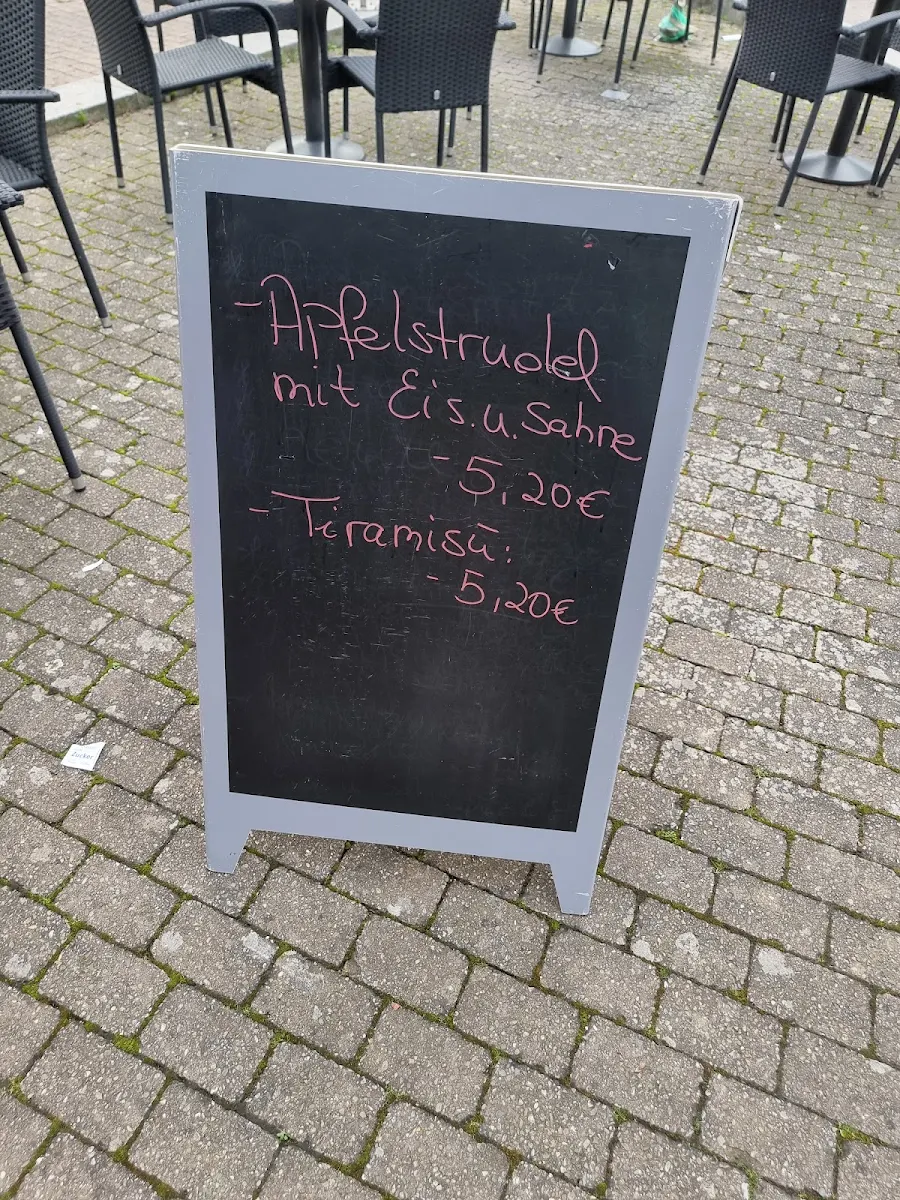 - Apfelstrudel
mit Eis.u.Sahne
- 5,20€
- Tiramisū:
- 5,20€
Zucker